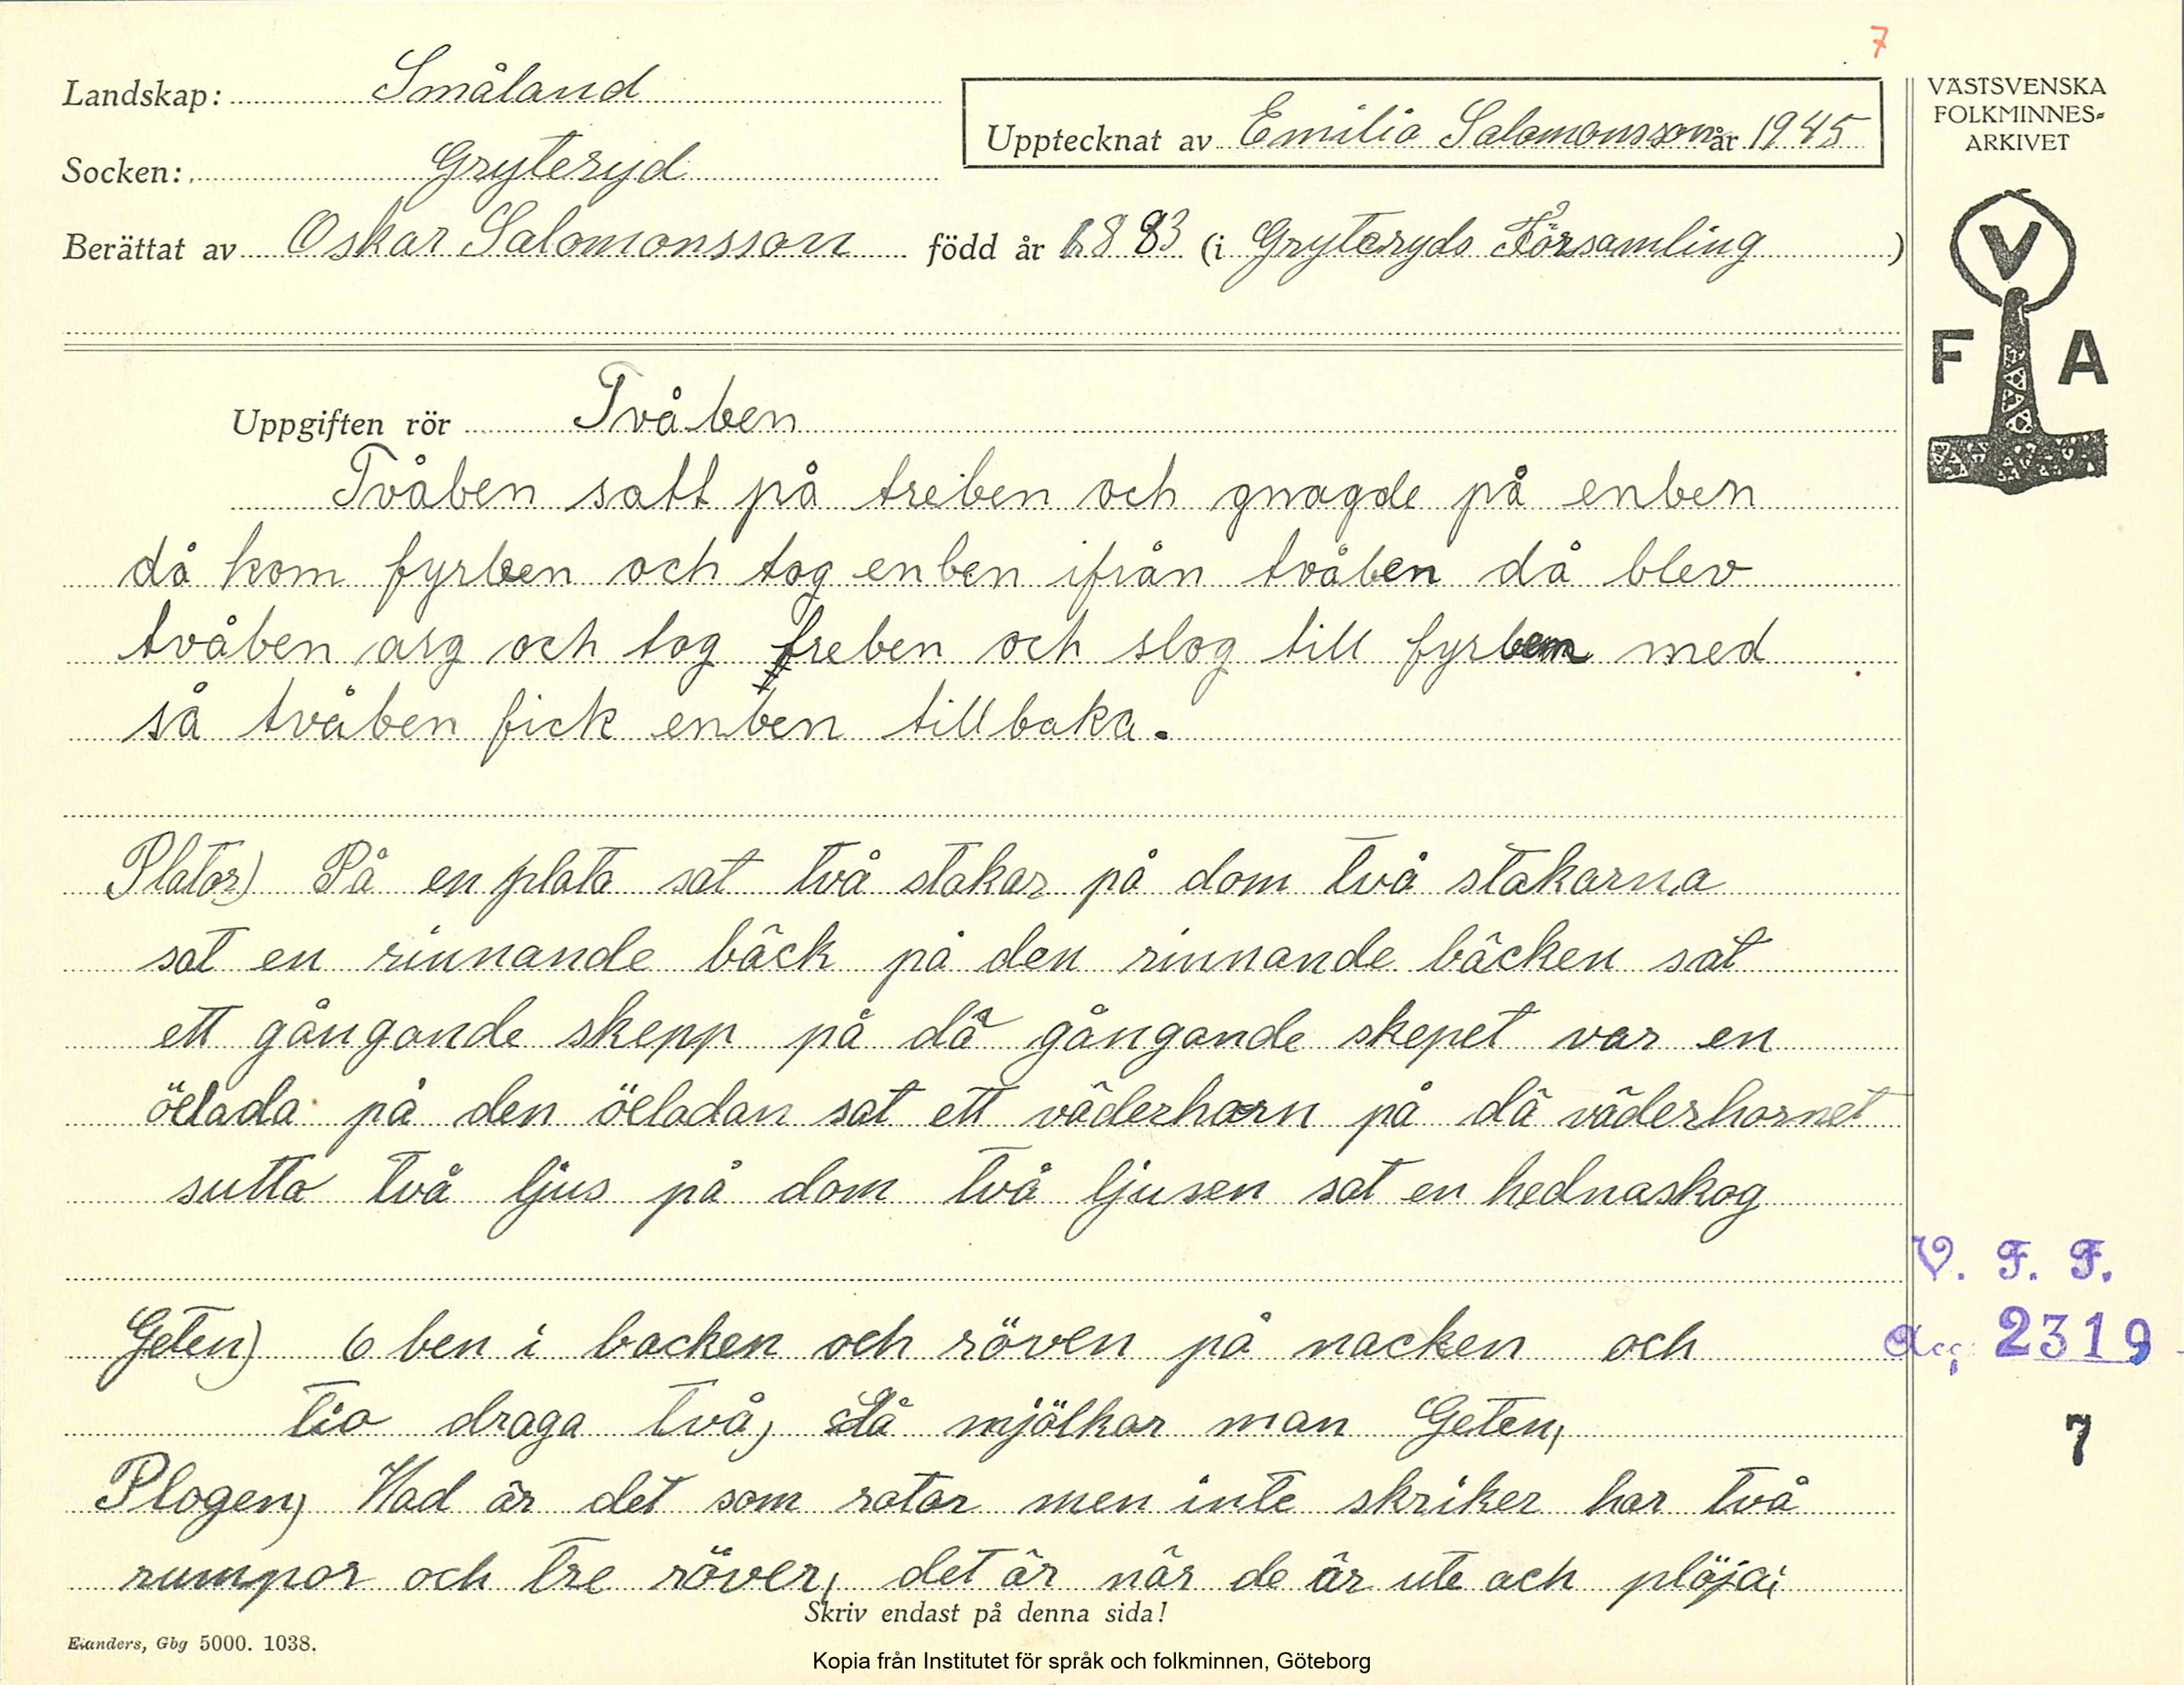 7
Landskap: Småland
Upptecknat av Emilia Salomonsson år 1945
Socken: Gryteryd
Berättat av Oskar Salomonsson född år 1883 (i Gryteryds Församling )
VÄSTSVENSKA
FOLKMINNES-
ARKIVET
V
F A
Uppgiften rör Tvåben
Tvåben satt på treben och gnagde på enben
då kom fyrben och tog enben ifrån tvåben då blev
tvåben arg och tog treben och slog till fyrben med
så tvåben fick enben tillbaka.
Plator) På en plata sat två stakar på dom två stakarna
sat en rinnande bäck på den rinnande bäcken sat
ett gångande skepp på dä gångande skepet var en
öelada på den öeladan sat ett väderhorn på dä väderhornet
sutto två ljus på dom två ljusen sat en hednaskog
Geten) 6 ben i backen och röven på nacken och
tio draga två, då mjölkar man Geten,
Plogen, Vad är det som rotar men inte skriker har två
rumpor och tre röver, det är när de är ute och plöja;
V. F. F.
Acc: 2319
7
Skriv endast på denna sida!
Elanders, Gbg 5000. 1038.
Kopia från Institutet för språk och folkminnen, Göteborg